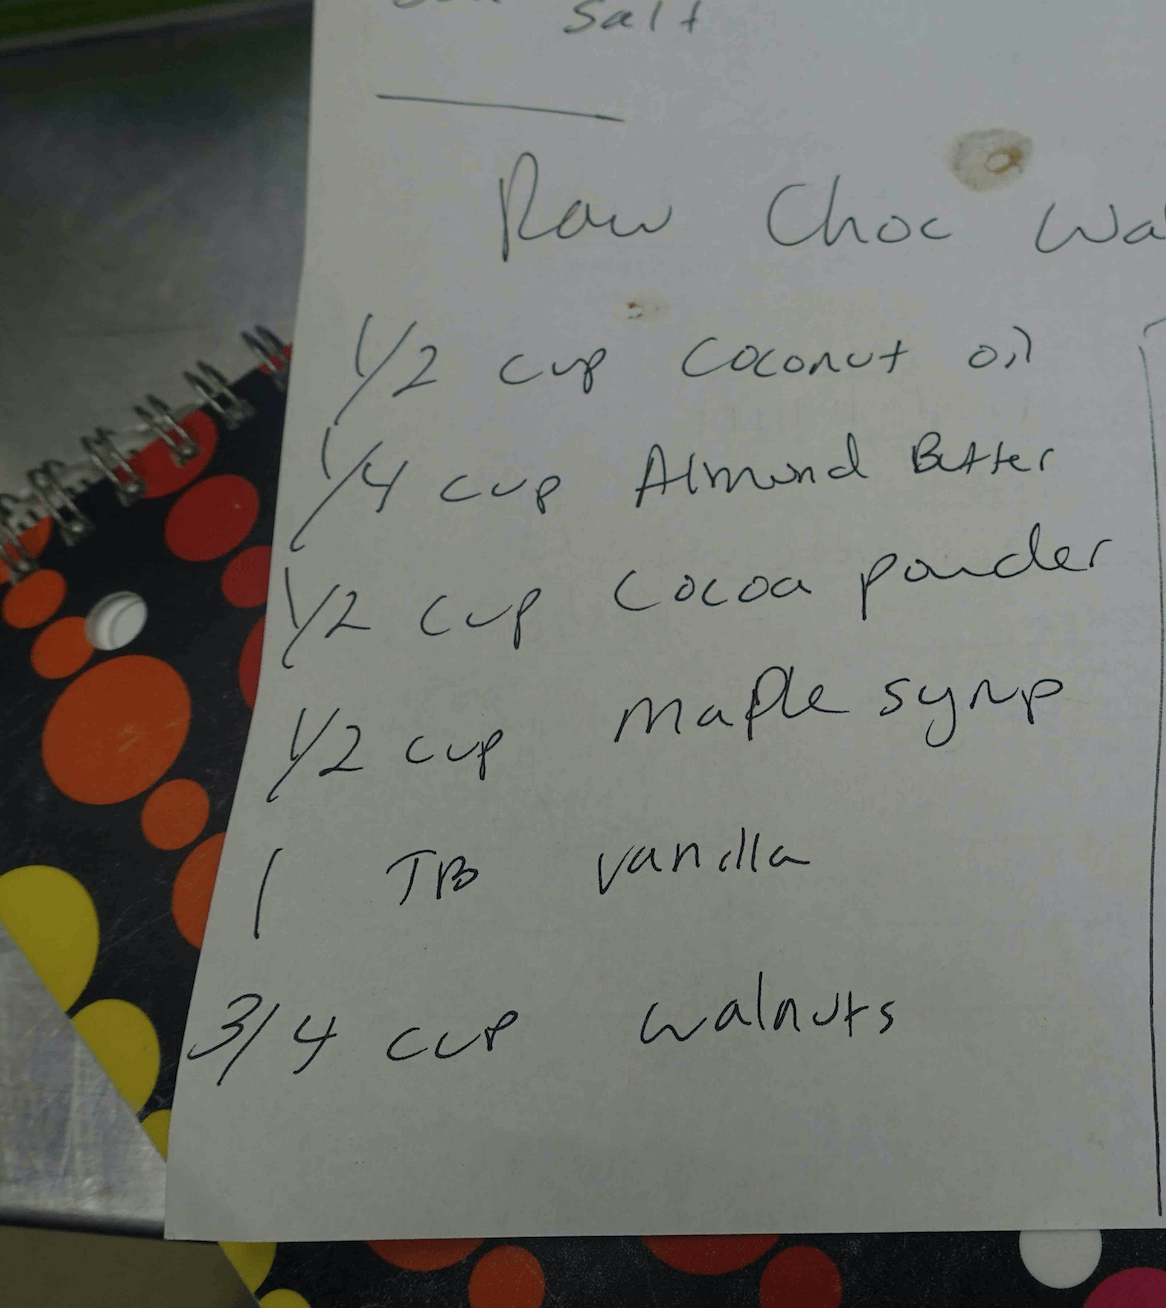 Salt
Raw Choc Wa
1/2 cup Coconut oil
1/4 cup Almond Butter
1/2 cup Cocoa powder
1/2 cup Maple syrup
1 TB vanilla
3/4 cup walnuts